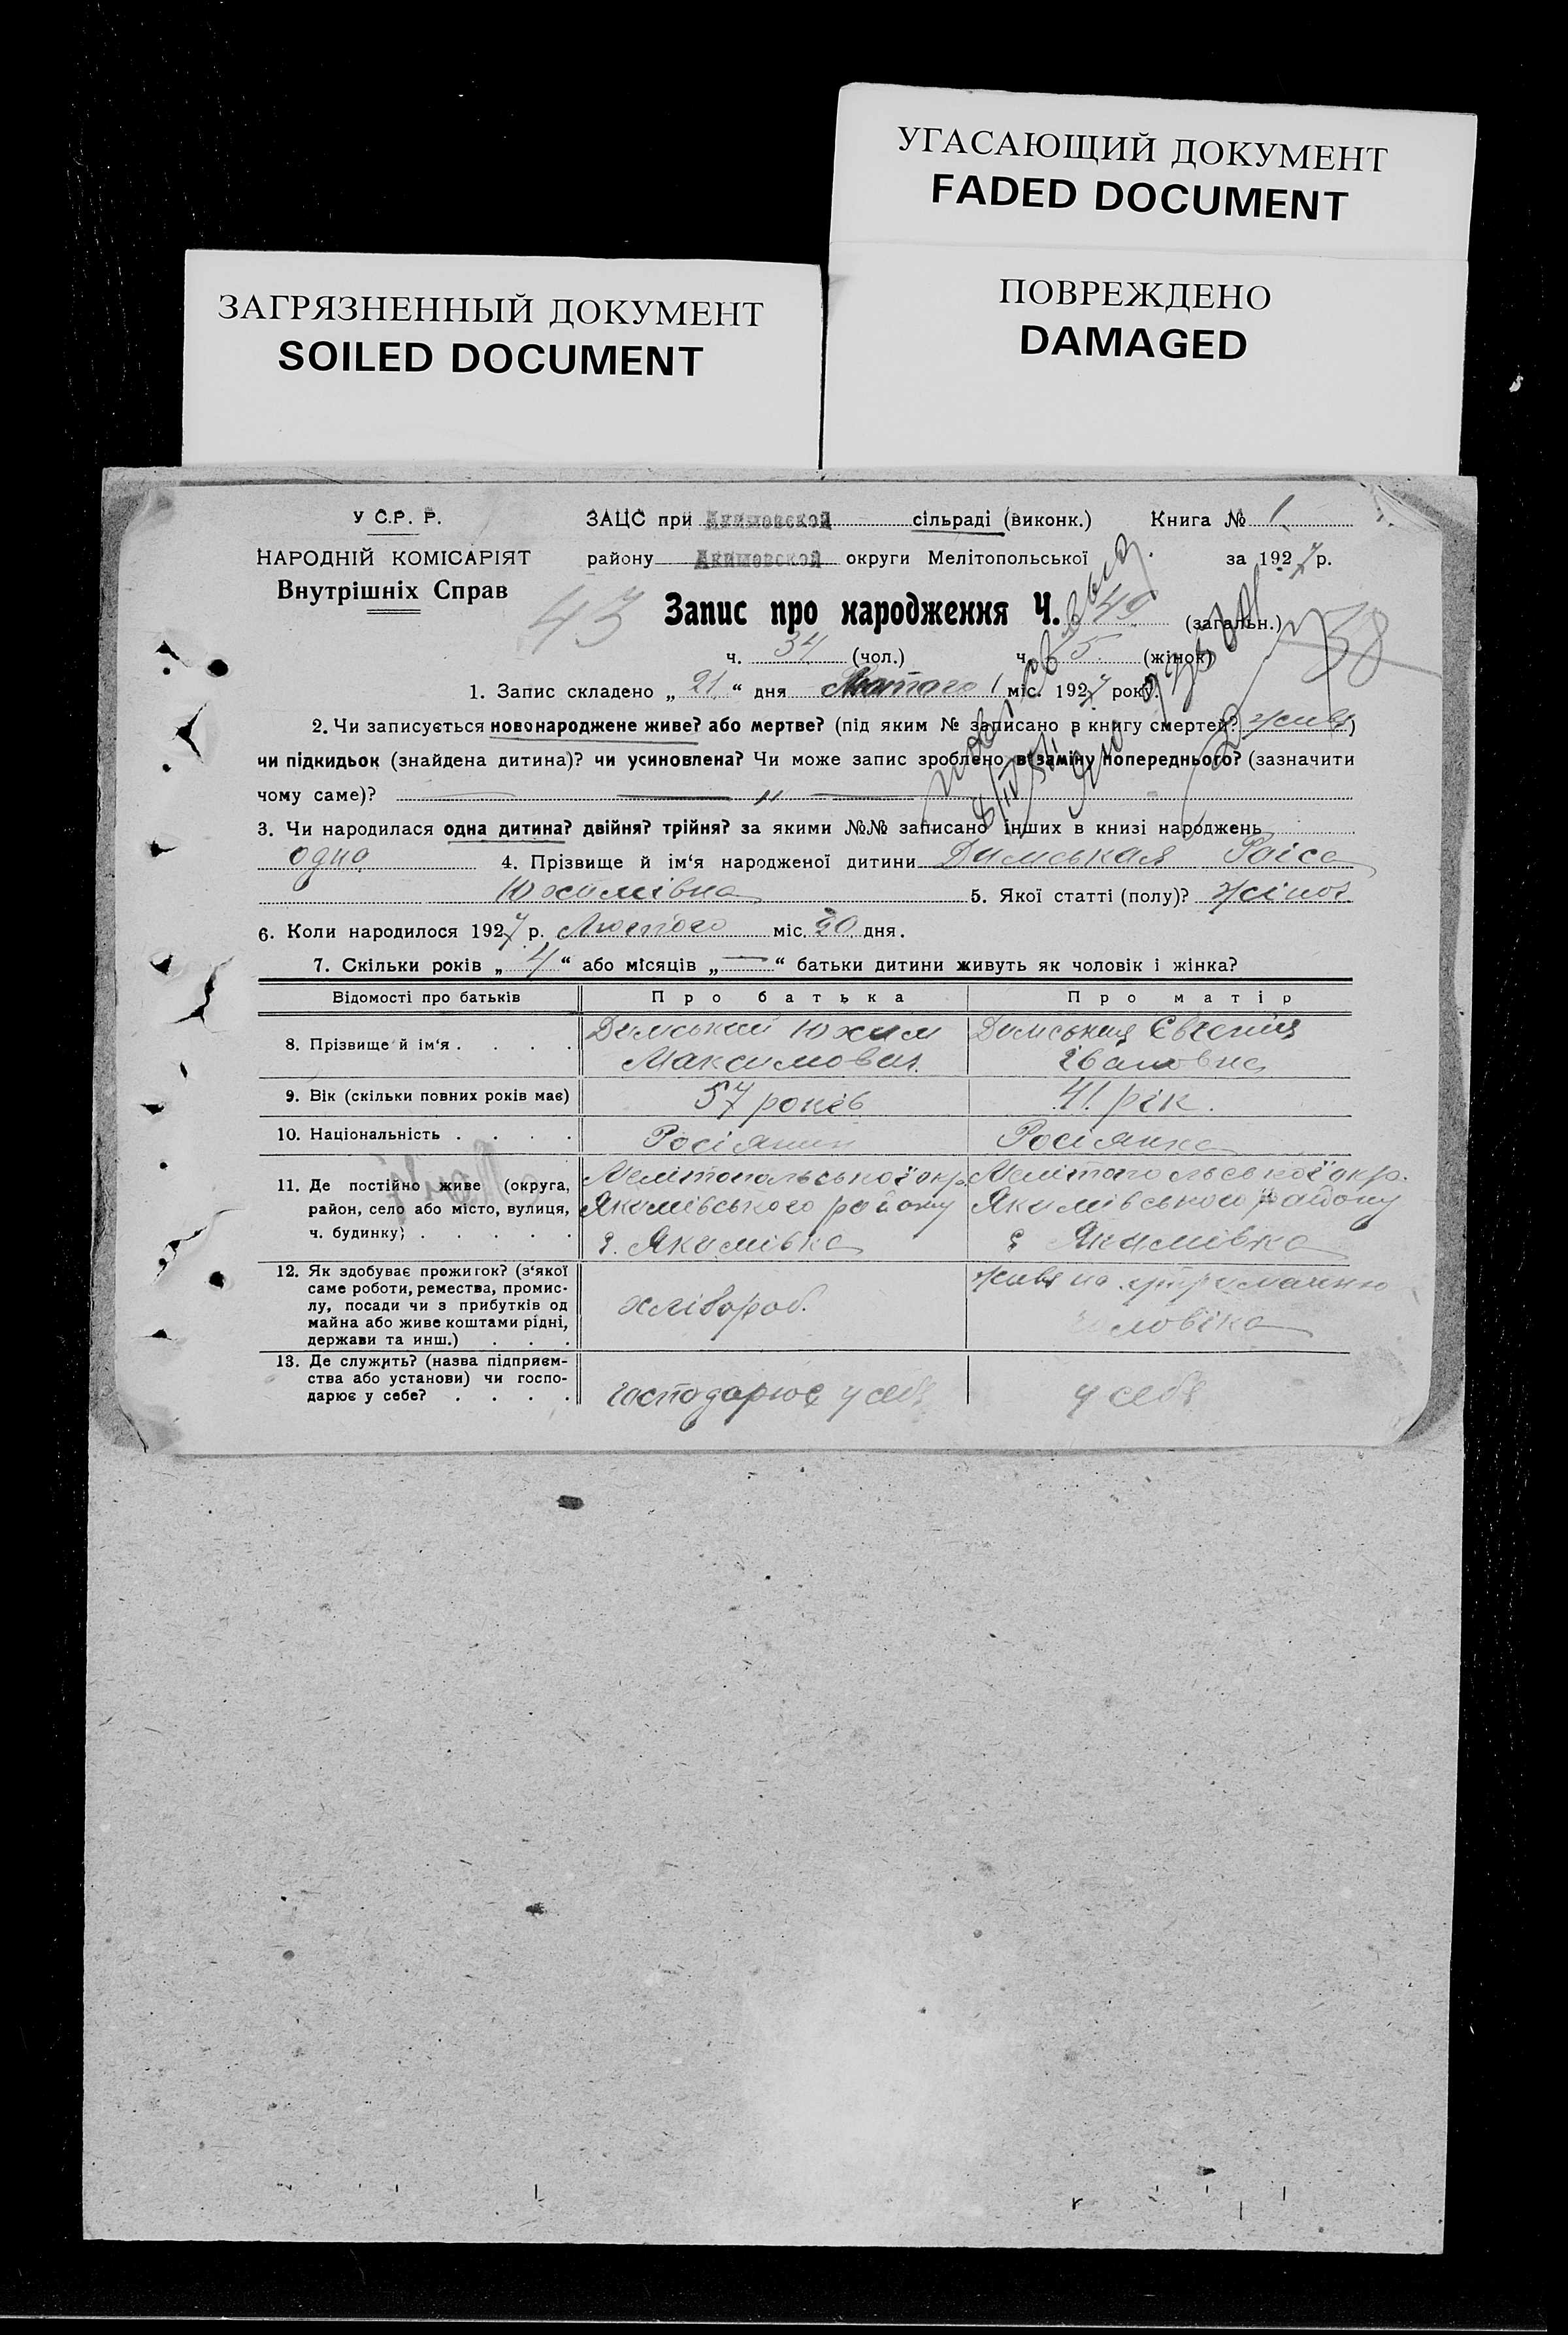 УГАСАЮЩИЙ ДОКУМЕНТ
FADED DOCUMENT
ЗАГРЯЗНЕННЫЙ ДОКУМЕНТ
SOILED DOCUMENT
ПОВРЕЖДЕНО
DAMAGED
У С.Р. Р.
НАРОДНІЙ КОМІСАРІЯТ
Внутрішніх Справ
ЗАЦС при Акимовской сільраді (виконк.) Книга № 1
району Акимовской округи Мелітопольської за 1927 р.
43
Запис про народження Ч. 49 (загальн.)
58
ч. 34 (чол.) ч. 15 (жінок)
1. Запис складено „ 21 “ дня Лютого міс. 1927 року.
2. Чи записується новонароджене живе? або мертве? (під яким № записано в книгу смертей? живе)
чи підкидьок (знайдена дитина)? чи усиновлена? Чи може запис зроблено взаміну попереднього? (зазначити
чому саме)? — „ —
3. Чи народилася одна дитина? двійня? трійня? за якими №№ записано інших в книзі народжень
одна 4. Прізвище й ім‘я народженої дитини Димськая Раіса
Юхимівна 5. Якої статті (полу)? жіноч.
6. Коли народилося 1927 р. Лютого міс. 20 дня.
7. Скільки років „ 4 “ або місяців „ — “ батьки дитини живуть як чоловік і жінка?
Відомості про батьків Про батька Про матір
8. Прізвище й ім‘я . . . . Димський Юхим Димськия Євгенія
Максимович. Івановна
9. Вік (скільки повних років має) 57 років 41 рік.
10. Національність . . . . Росіянин Росіянка
11. Де постійно живе (округа, Мелітопольської окр. Мелітопольської окр.
район, село або місто, вулиця, Якимівського району Якимівського району
ч. будинку) . . . . . с. Якимівка с. Якимівка
12. Як здобуває прожиток? (з‘якої живе на утриманню
саме роботи, ремества, промис-
лу, посади чи з прибутків од хлібороб.
майна або живе коштами рідні, чоловіка
держави та инш.) . . .
13. Де служить? (назва підприєм-
ства або установи) чи госпо- господарює у себе у себе
дарює у себе? . . . .